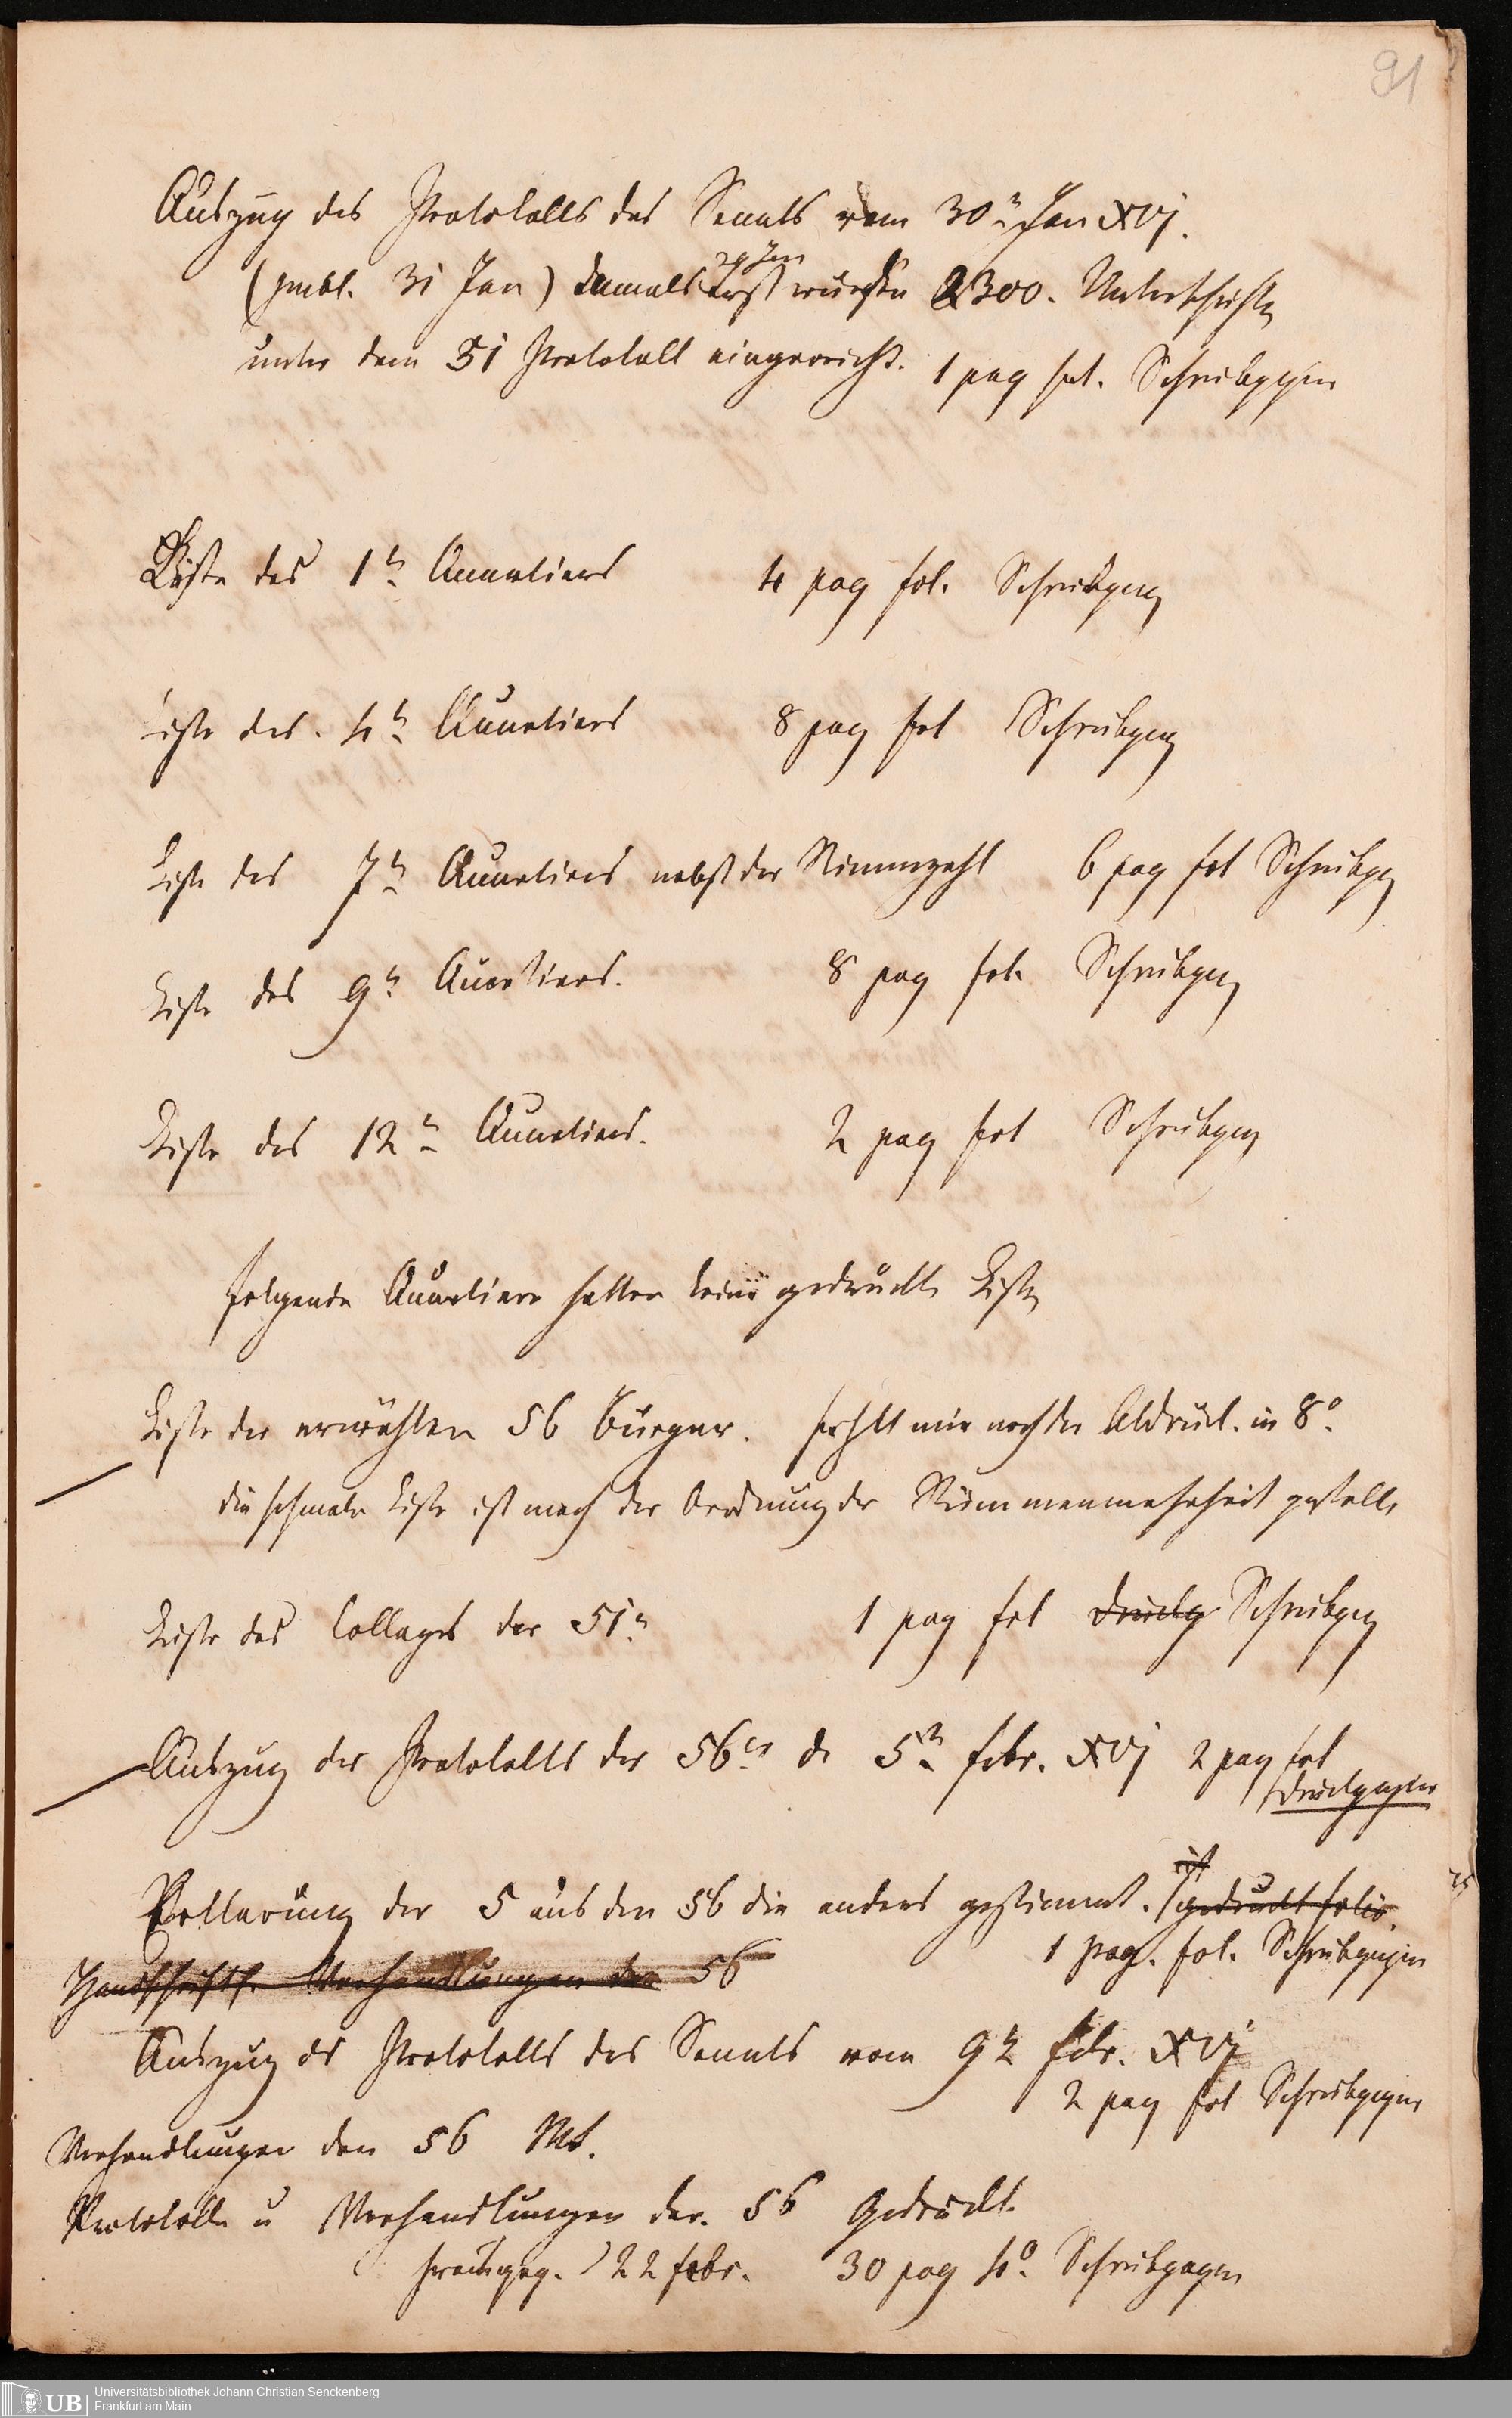 91
Auszug des Protokolls des Senats vom 30n Jan XVj.
29 Jan
(publ. 31 Jan) damals erst wurden 2300. Unterschriften
unter dem 51 Protokoll eingereicht. 1 pag fol. Schreibpapier
Liste des 1n Quartiers 4 pag fol. Schreibpap
Liste des 4n Quartiers 8 pag fol Schreibpap
Liste des 7n Quartiers nebst der Stimmzahl 6 pag fol Schreibpap
Liste des 9n Quartiers. 8 pag fol. Schreibpap
Liste des 12n Quartiers. 2 pag fol Schreibpap
folgende Quartiere hatten keine gedruckte Listen
Liste der erwählten 56 Bürger. fehlt mir noch der Abdruck in 8o.
die schmale Liste ist nach der Ordnung der Stimmenmehrheit gestellt
Liste des Colleges der 51n 1 pag fol Druckp Schreibpap
Auszug des Protokolls der 56er d. 5n febr. XVj 2 pag fol
Druckpapier
Erklärung der 5 aus den 56 die anders gestimmt. ist gedruckt folio.
1 pag. fol. Schreibpapier
Handschriftl. Verhandlungen der 56
Auszug des Protokolls des Senats vom 9n febr. XVj
2 pag fol Schreibpapier
Verhandlungen der 56 Mt.
Protokolle u Verhandlungen der 56 Gedruckt.
herausgeg. 22 febr. 30 pag 4o. Schreibpapier
UB
Universitätsbibliothek Johann Christian Senckenberg
Frankfurt am Main